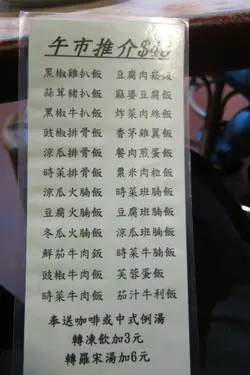 午市推介$43
黑椒雞扒飯 豆腐肉崧飯
蒜茸豬扒飯 麻婆豆腐飯
黑椒牛扒飯 炸菜肉絲飯
豉椒排骨飯 香茅雞翼飯
涼瓜排骨飯 餐肉煎蛋飯
時菜排骨飯 粟米肉粒飯
涼瓜火腩飯 時菜班腩飯
豆腐火腩飯 豆腐班腩飯
冬瓜火腩飯 涼瓜班腩飯
鮮茄牛肉飯 時菜牛腩飯
豉椒牛肉飯 芙蓉蛋飯
時菜牛肉飯 茄汁牛利飯
奉送咖啡或中式例湯
轉凍飲加3元
轉羅宋湯加6元